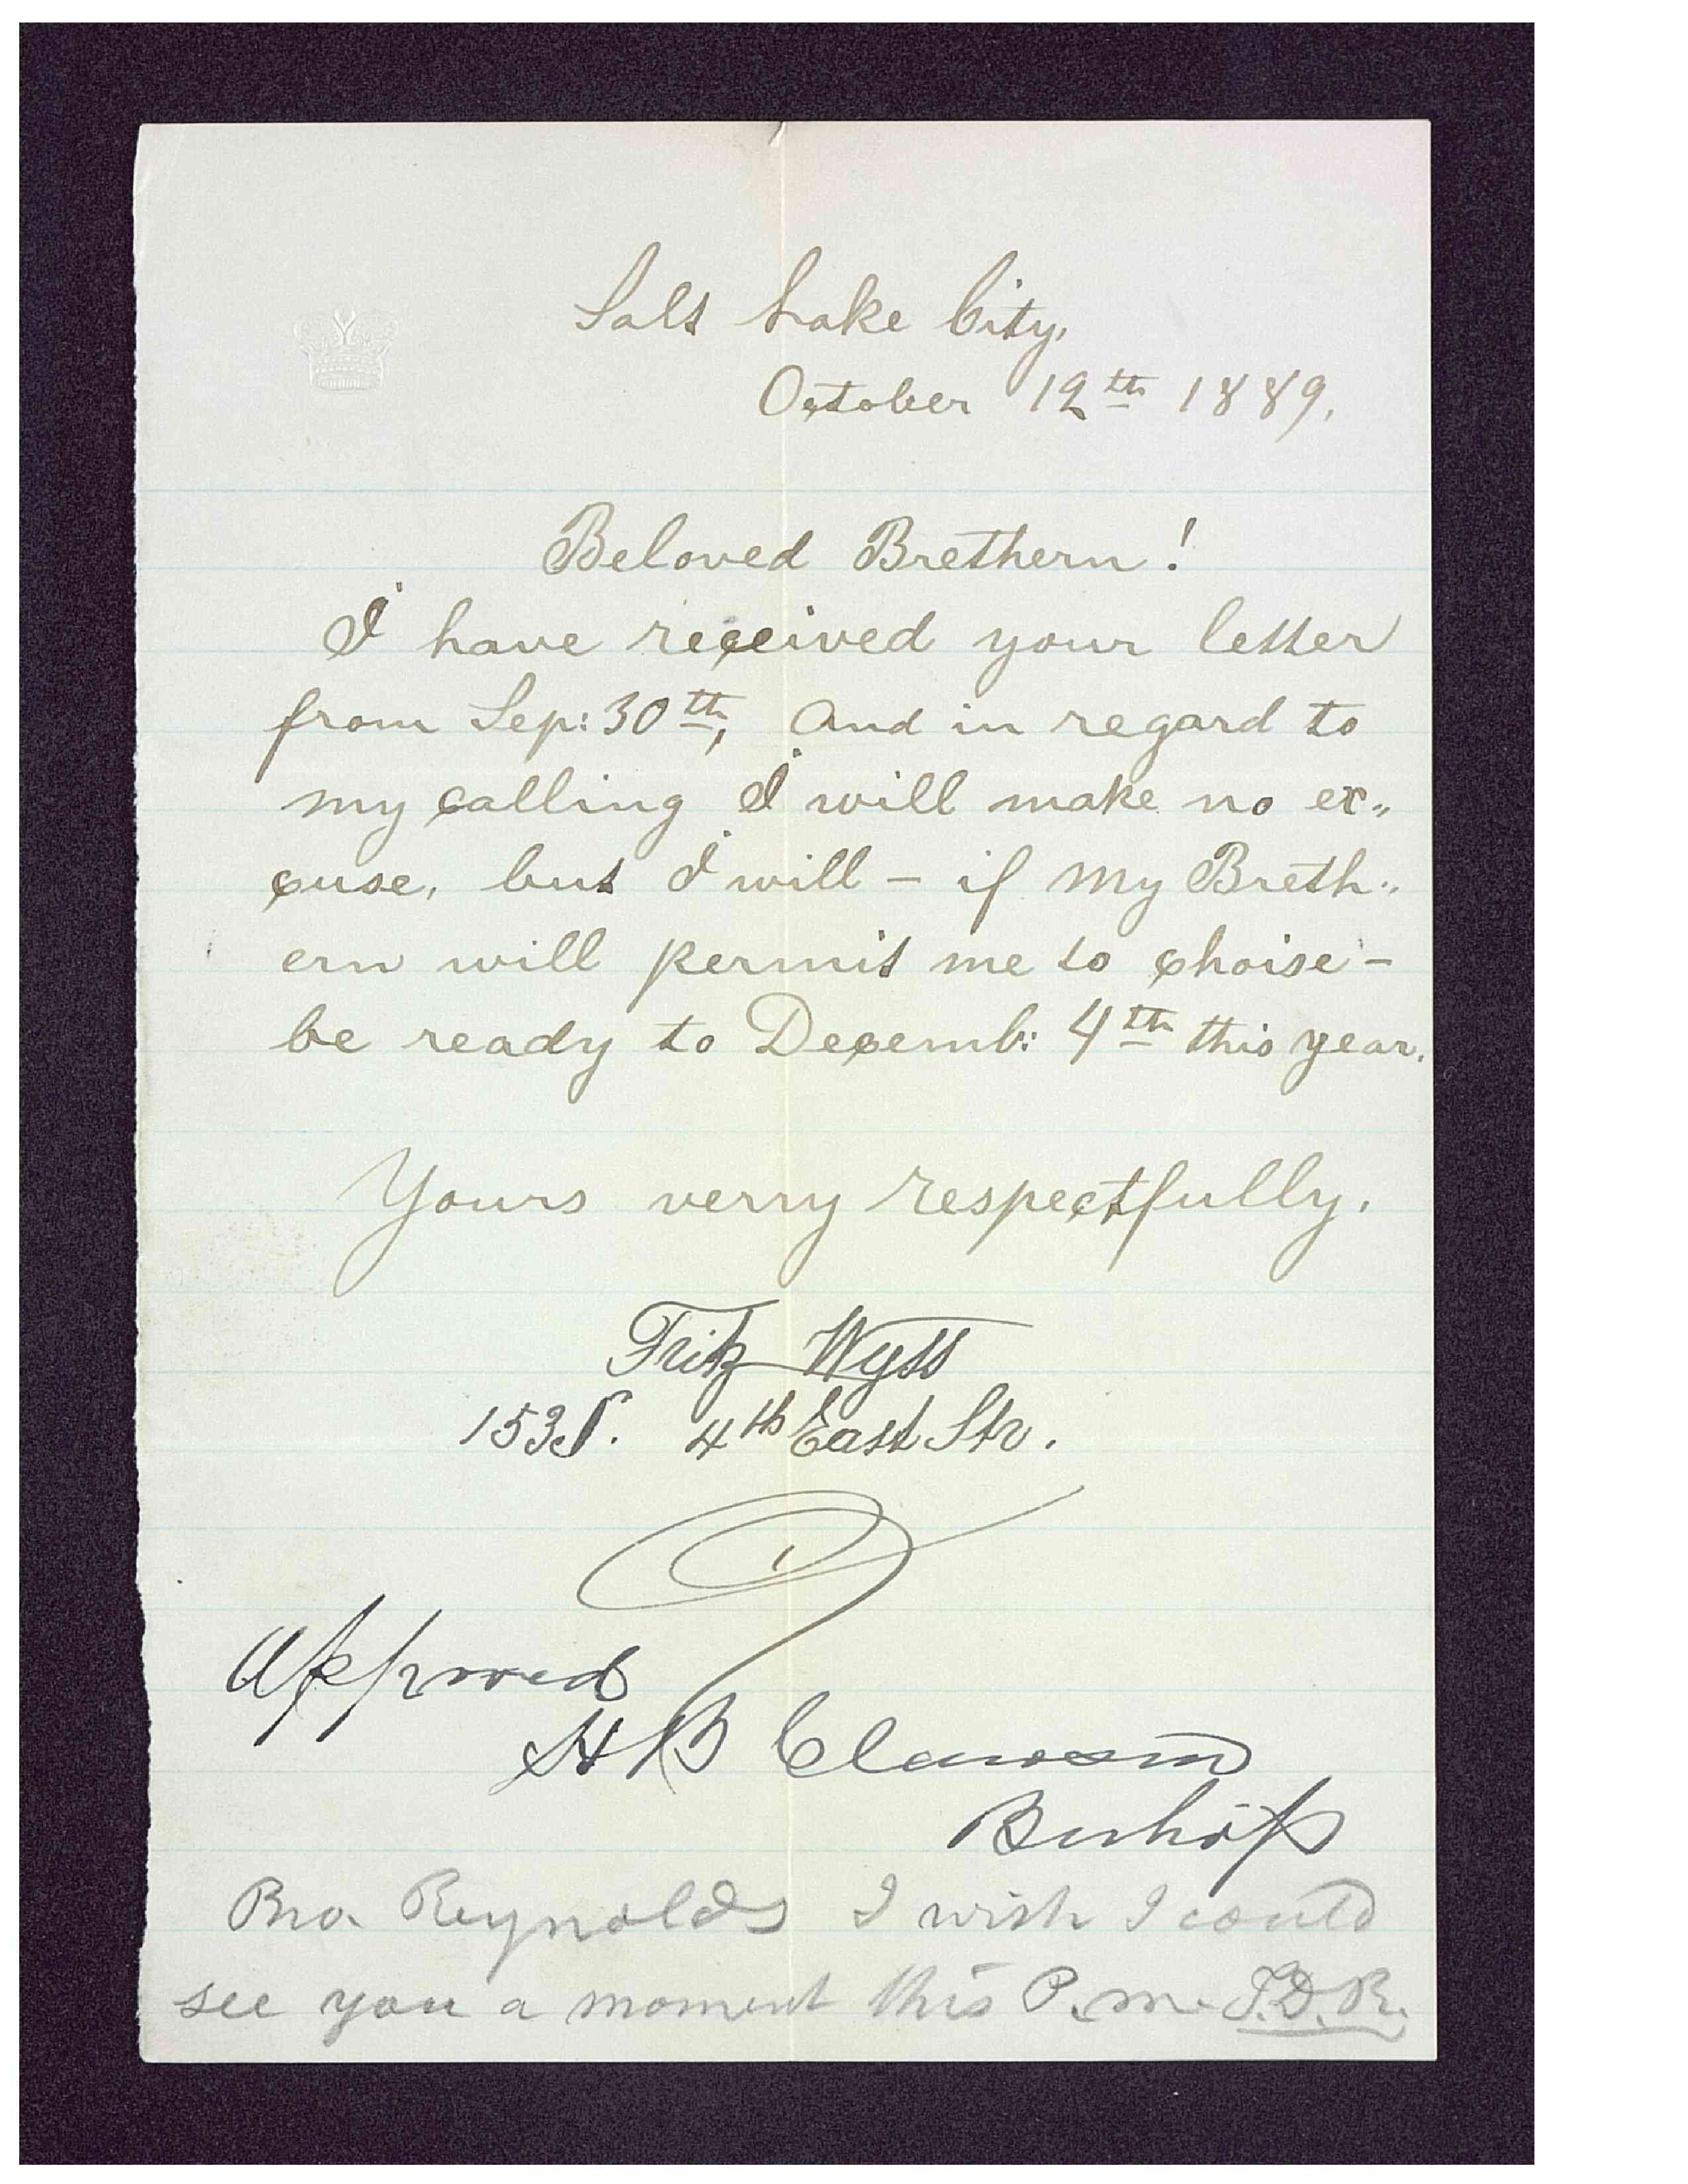 Salt Lake City,
October 12th 1889.
Beloved Brethern!
I have received your letter
from Sep: 30th, And in regard to
my calling I will make no ex„
cuse, but I will – if my Breth„
ern will permit me to choise –
be ready to Decemb: 4th this year.
Yours verry respectfully.
Fritz Wyss
153 S. 4th East Str.
Approved
H B Clawson
Bishop
Bro. Reynolds I wish I could
see you a moment this P.m.